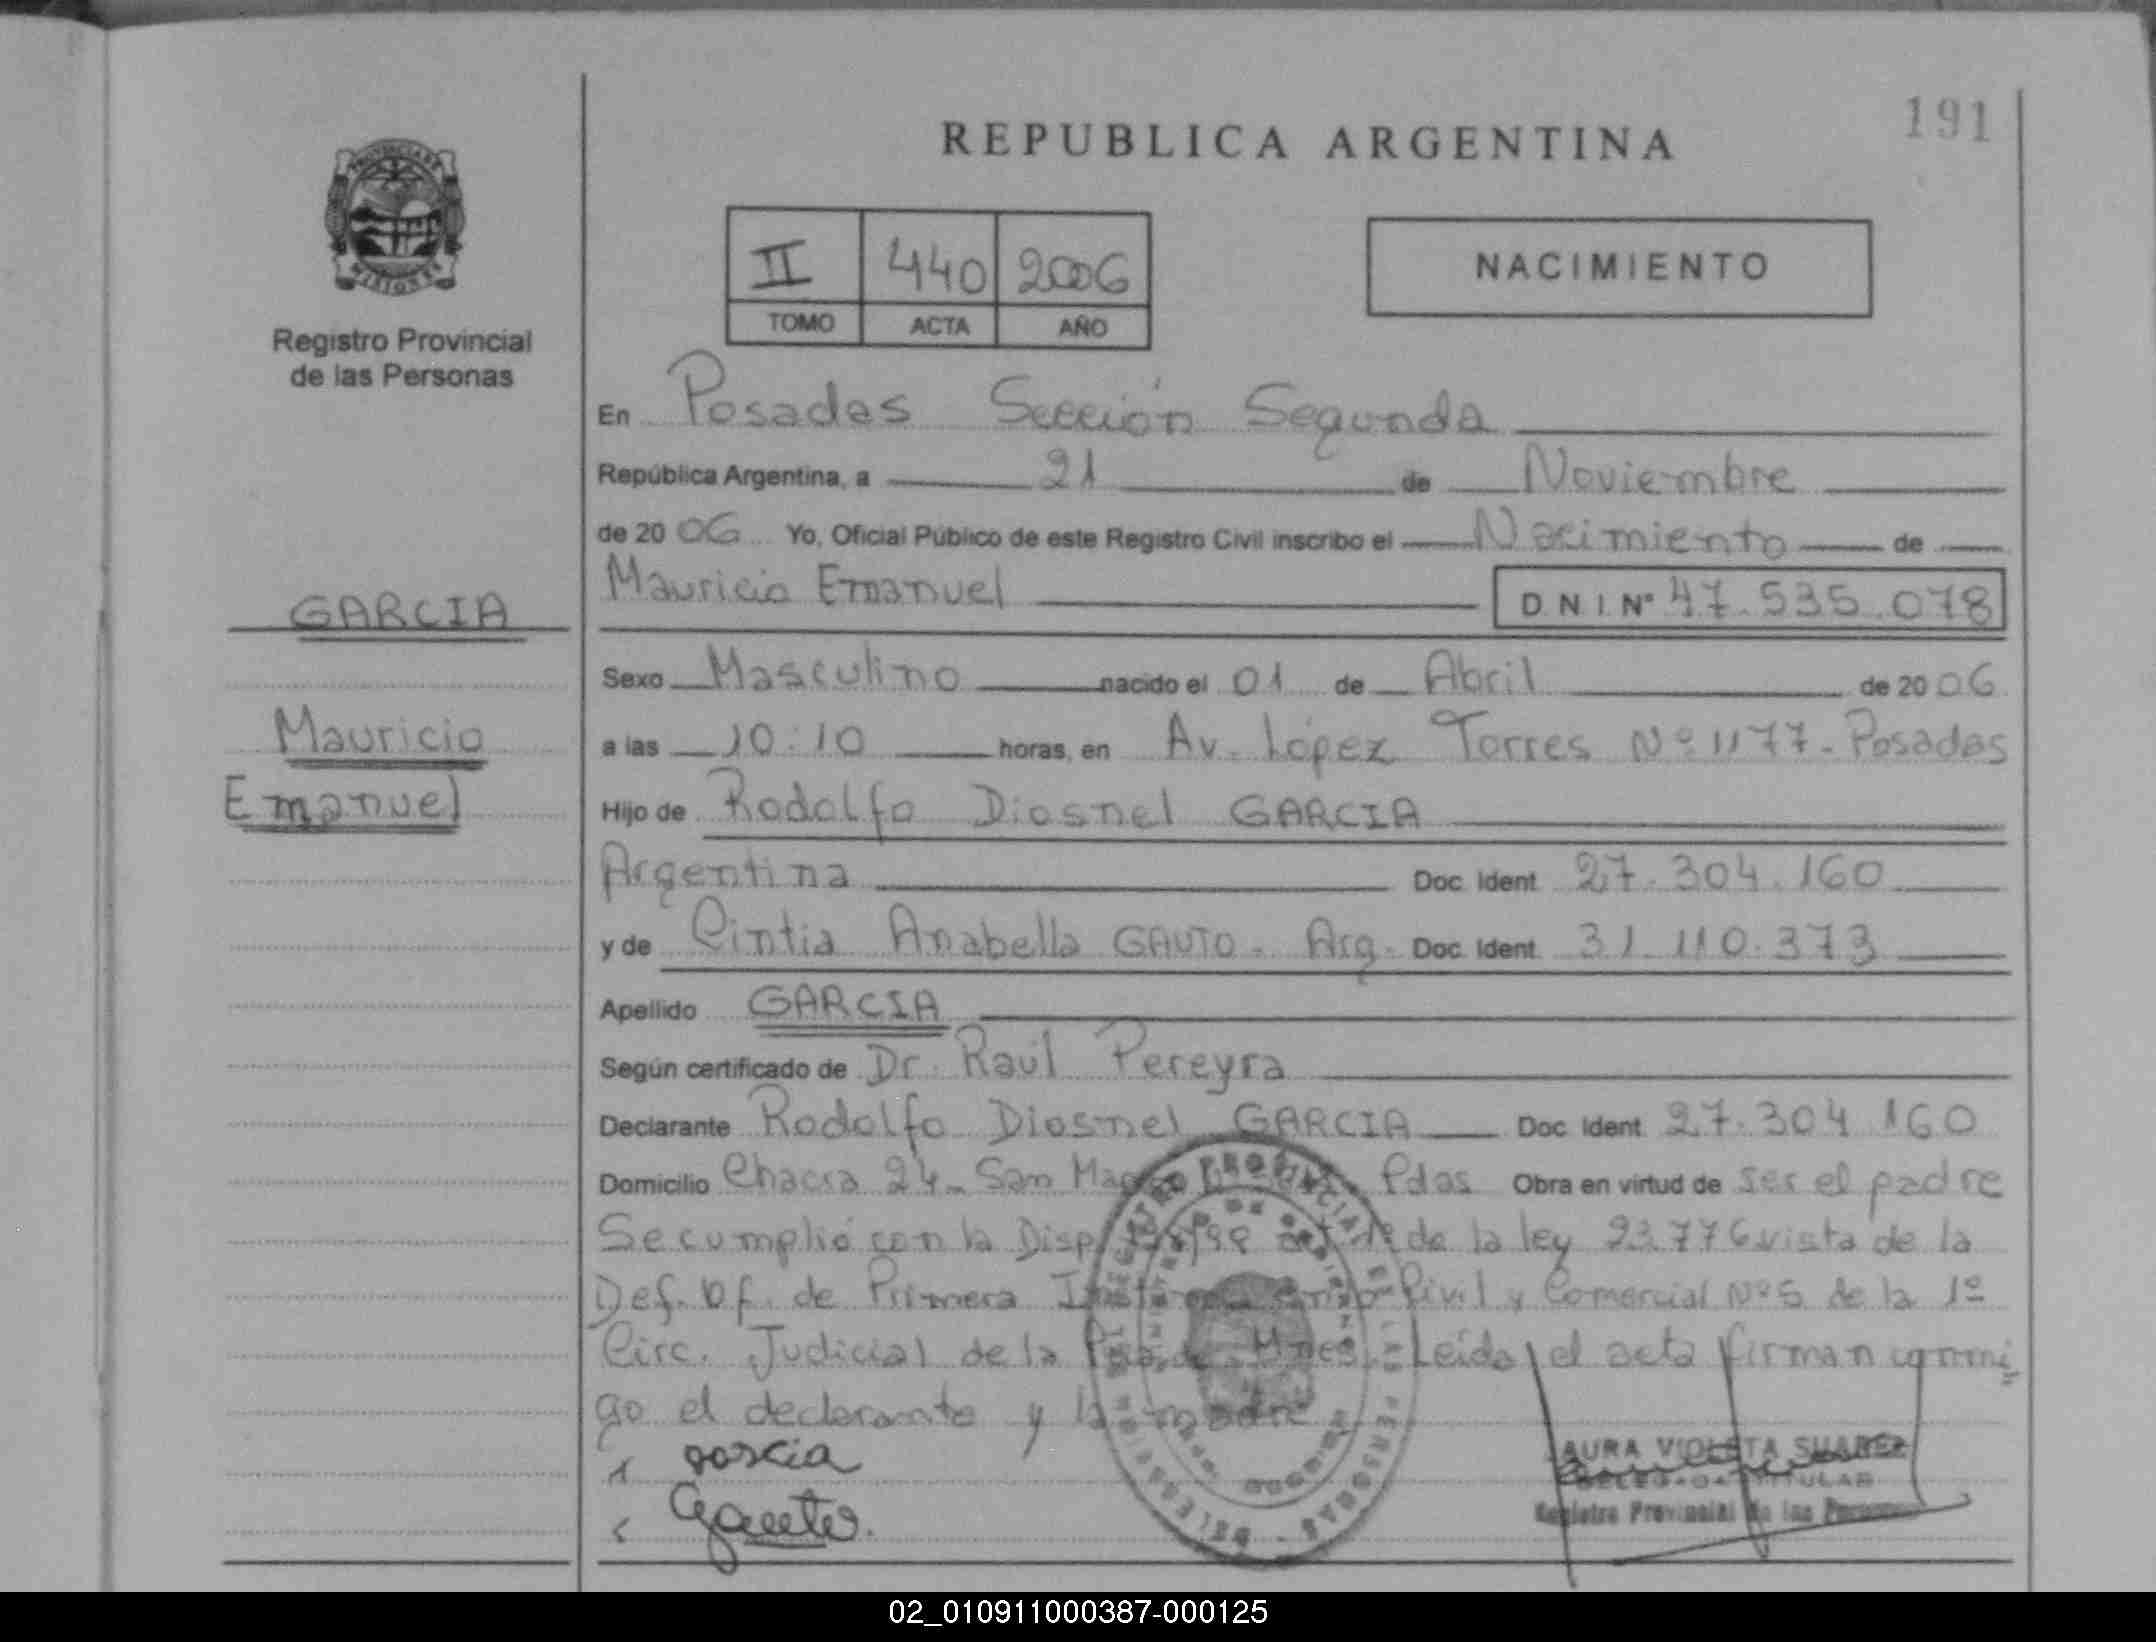 191
REPUBLICA ARGENTINA
PROVINCIA DE
MISIONES
Registro Provincial
de las Personas
II 440 2006
TOMO ACTA AÑO
NACIMIENTO
En Posadas Sección Segunda
República Argentina, a 21 de Noviembre
de 20 06 Yo, Oficial Público de este Registro Civil inscribo el Nacimiento de
Mauricio Emanuel D N I. Nº 47.535.078
GARCIA
Mauricio
Emanuel
Sexo Masculino nacido el 01 de Abril de 20 06
a las 10:10 horas, en Av. López Torres Nº 1177 - Posadas
Hijo de Rodolfo Diosnel GARCIA
Argentina Doc. Ident. 27.304.160
y de Cintia Anabella GAUTO - Arg. Doc. Ident. 31.110.373
Apellido GARCIA
Según certificado de Dr. Raúl Pereyra
Declarante Rodolfo Diosnel GARCIA Doc. Ident. 27.304.160
Domicilio Chacra 24 - San Pdas Obra en virtud de ser el padre
Se cumplió con la Disp de la ley 23.776 vista de la
Def. Of. de Primera Civil y Comercial Nº 5 de la 1º
Circ. Judicial de la Mnes. Leída el acta firman conmi
go el declarante y la madre
garcia
Gauto.
LAURA VIOLETA SUAREZ
DELEGADA TITULAR
Registro Provincial de las Personas
02_010911000387-000125